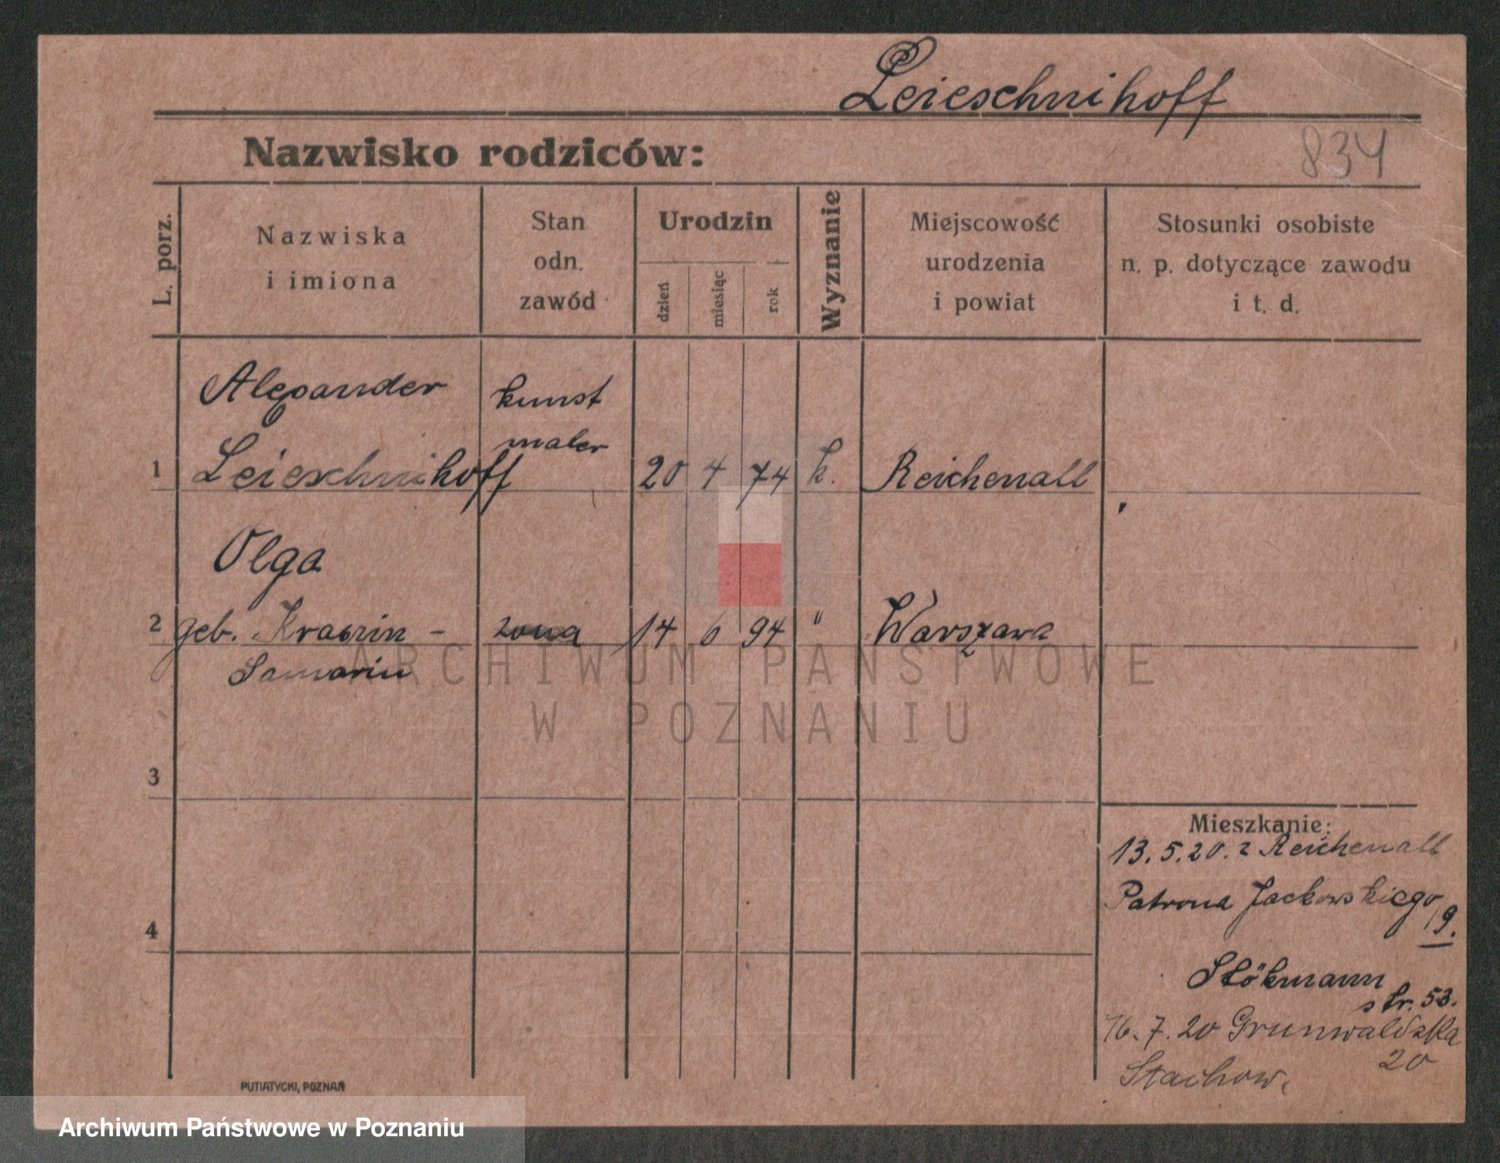 Leieschnihoff
834
Nazwisko rodziców:
L. porz.
Nazwiska
i imiona
Stan
odn.
zawód
Urodzin
dzień
miesiąc
rok
Wyznanie
Miejscowość
urodzenia
i powiat
Stosunki osobiste
n. p. dotyczące zawodu
i t. d.
Alexander
kunst
maler
1 Leieschnihoff 20 4 74 k. Reichenall
Olga
2 geb. - żona 14 6 94 " Warszawa
Samarin
ARCHIWUM PAŃSTWOWE
W POZNANIU
3
4
Mieszkanie:
13.5.20. z Reichenall
Patrona Jackowskiego
19.
Stökmann
str. 53.
16.7.20 Grunwaldzka
20
Stachow.
PUTIATYCKI, POZNAŃ
Archiwum Państwowe w Poznaniu